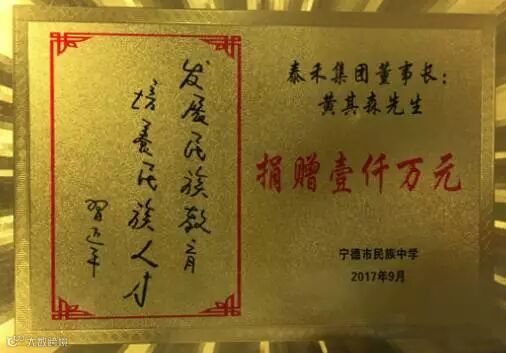 发展民族教育
培养民族人才
习近平
泰禾集团董事长：
黄其森先生
捐赠壹仟万元
宁德市民族中学
2017年9月
大数跨境